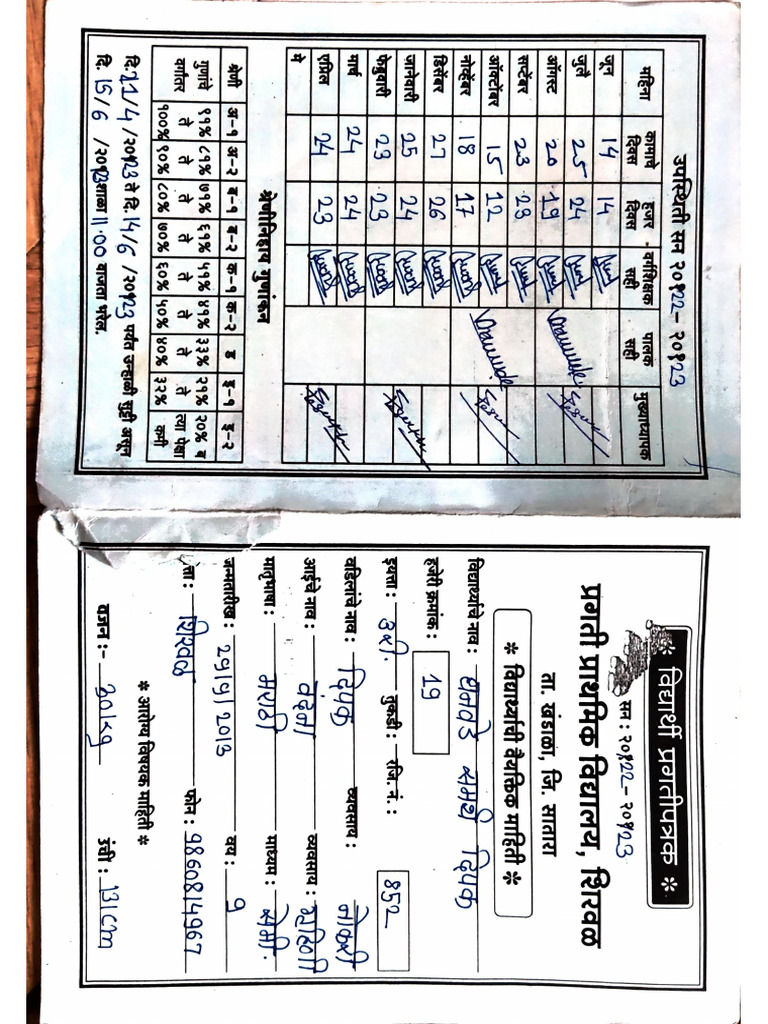 उपस्थिती सन २०२22 – २०२23
महिना कामाचे दिवस हजर दिवस वर्गशिक्षक सही पालक सही मुख्याध्यापक
जून 14 14
जुलै 25 24
ऑगस्ट 20 19
सप्टेंबर 23 23
ऑक्टोंबर 15 12
नोव्हेंबर 18 17
डिसेंबर 27 26
जानेवारी 25 24
फेब्रुवारी 23 23
मार्च 24 24
एप्रिल 24 23
मे
श्रेणीनिहाय गुणांकन
श्रेणी अ-१ अ-२ ब-१ ब-२ क-१ क-२ ड इ-१ इ-२
गुणांचे वर्गांतर ९१% ते १००% ८१% ते ९०% ७१% ते ८०% ६१% ते ७०% ५१% ते ६०% ४१% ते ५०% ३३% ते ४०% २१% ते ३२% २०% व त्या पेक्षा कमी
दि. 21/4 /२०23 ते दि. 14/6 /२०23 पर्यंत उन्हाळी सुट्टी असून
दि. 15/6 /२०23 शाळा 11.00 वाजता भरेल.
* विद्यार्थी प्रगतीपत्रक *
सन : २०22 – २०23
प्रगती प्राथमिक विद्यालय, शिरवळ
ता. खंडाळा, जि. सातारा
* विद्यार्थ्याची वैयक्तिक माहिती *
विद्यार्थ्याचे नाव : धनवडे समर्थ दिपक
हजेरी क्रमांक : 19
इयत्ता : 3री. तुकडी : रजि. नं. : 852
वडिलांचे नाव : दिपक व्यवसाय : नोकरी
आईचे नाव : वंदना व्यवसाय : गृहिणी
मातृभाषा : मराठी माध्यम : सेमी.
जन्मतारीख : 29/9/2013 वय : 9
त्ता : शिरवळ फोन : 9860814967
* आरोग्य विषयक माहिती *
वजन :- 30kg उंची : 131cm